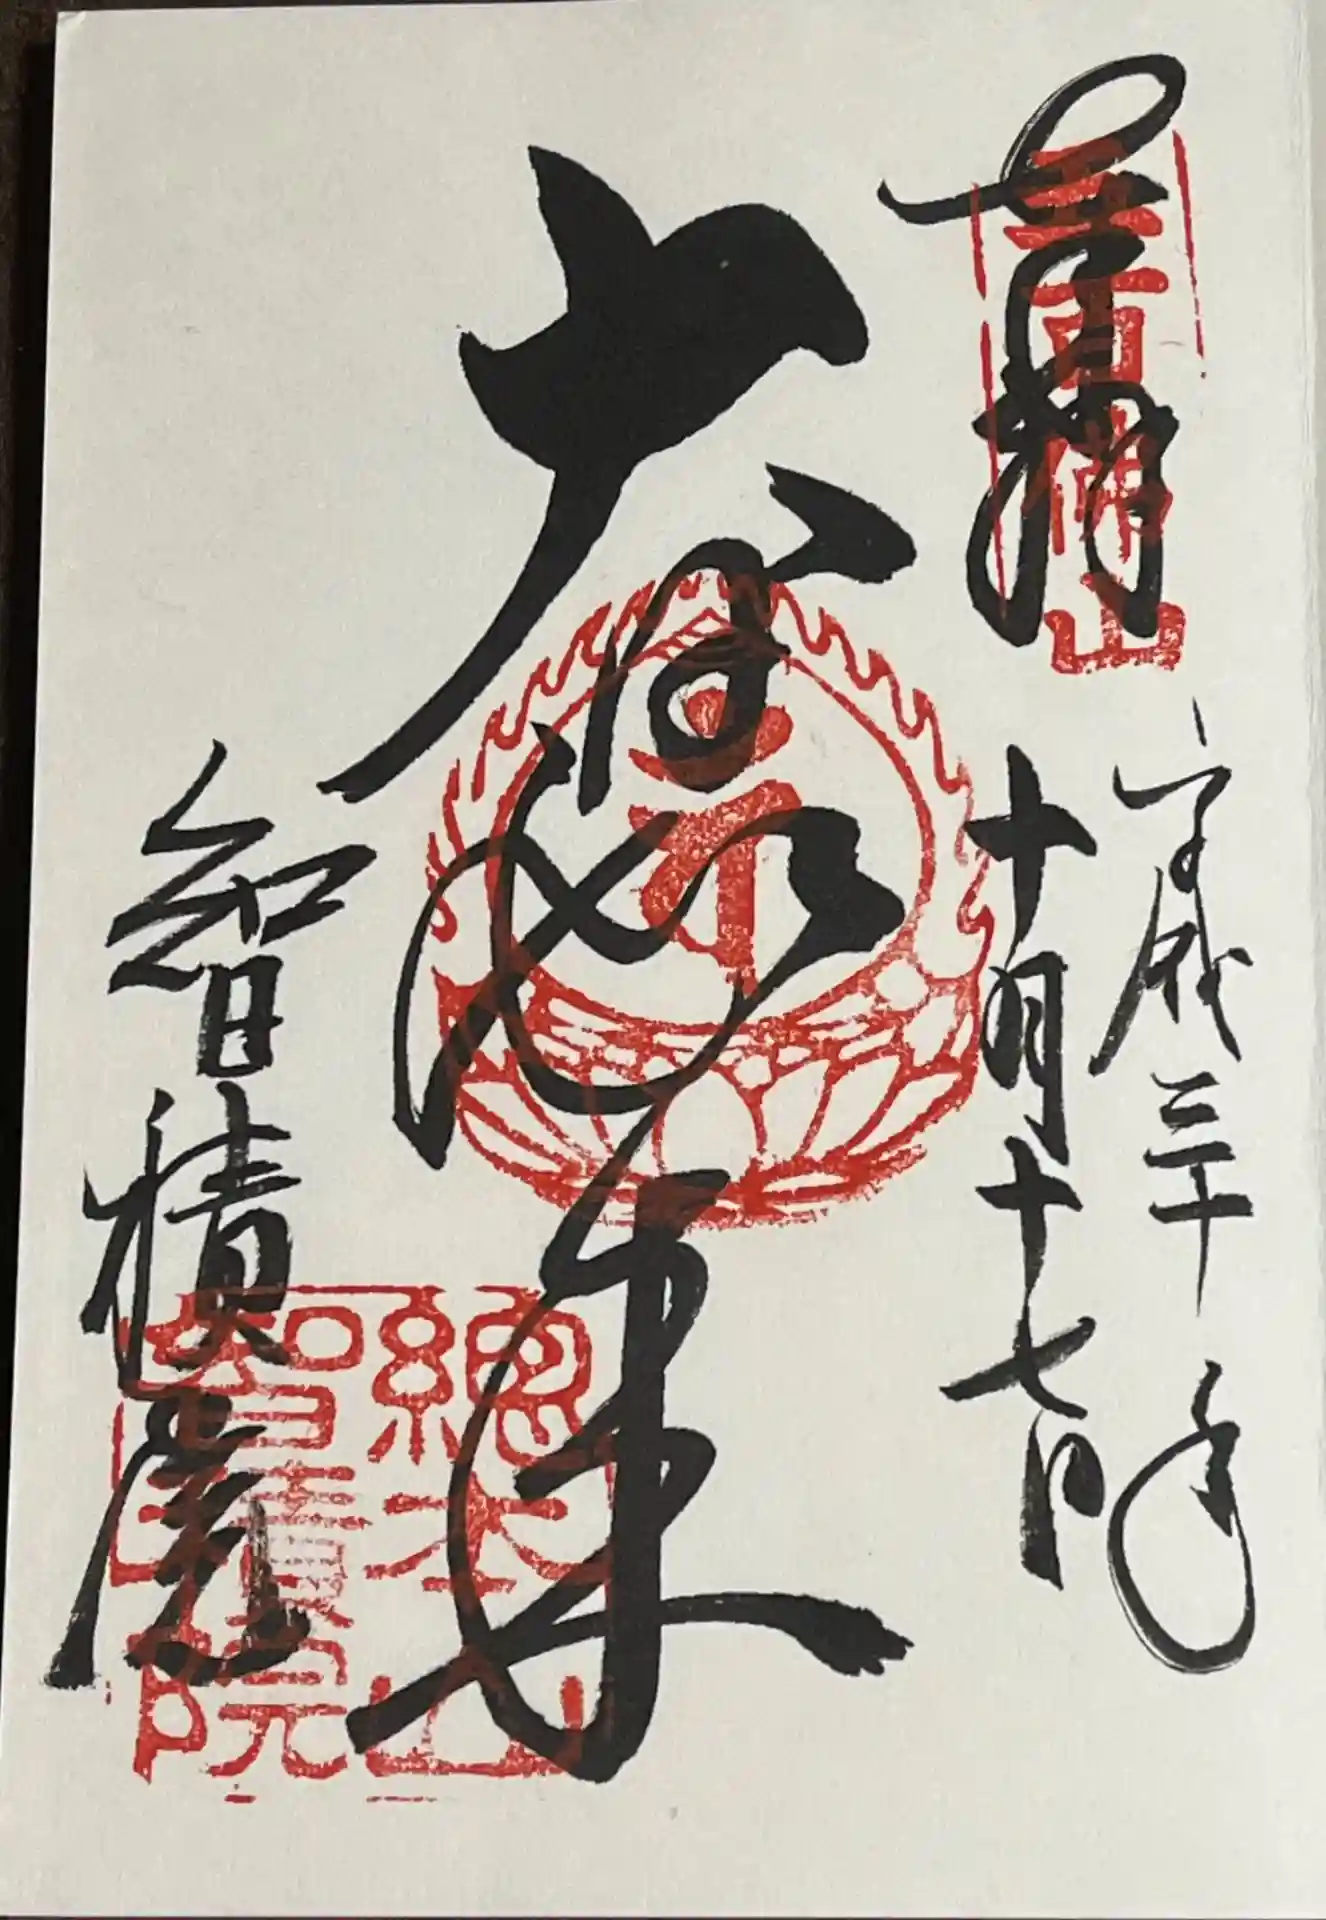 奉拝
五百佛山
平成三十年
十月十七日
大日如来
智積院
總本山
智積院